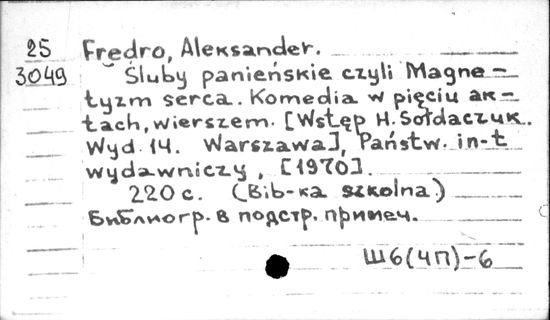 25
3049
Fredro, Aleksander.
Śluby panieńskie czyli Magne-
tyzm serca. Komedia w pięciu ak-
tach, wierszem. [Wstęp H. Sołdaczuk.
Wyd. 14. Warszawa], Państw. in-t
wydawniczy, [1970].
220 с. (Bib-ka szkolna.)
Библиогр. в подстр. примеч.
Ш6(4П)-6